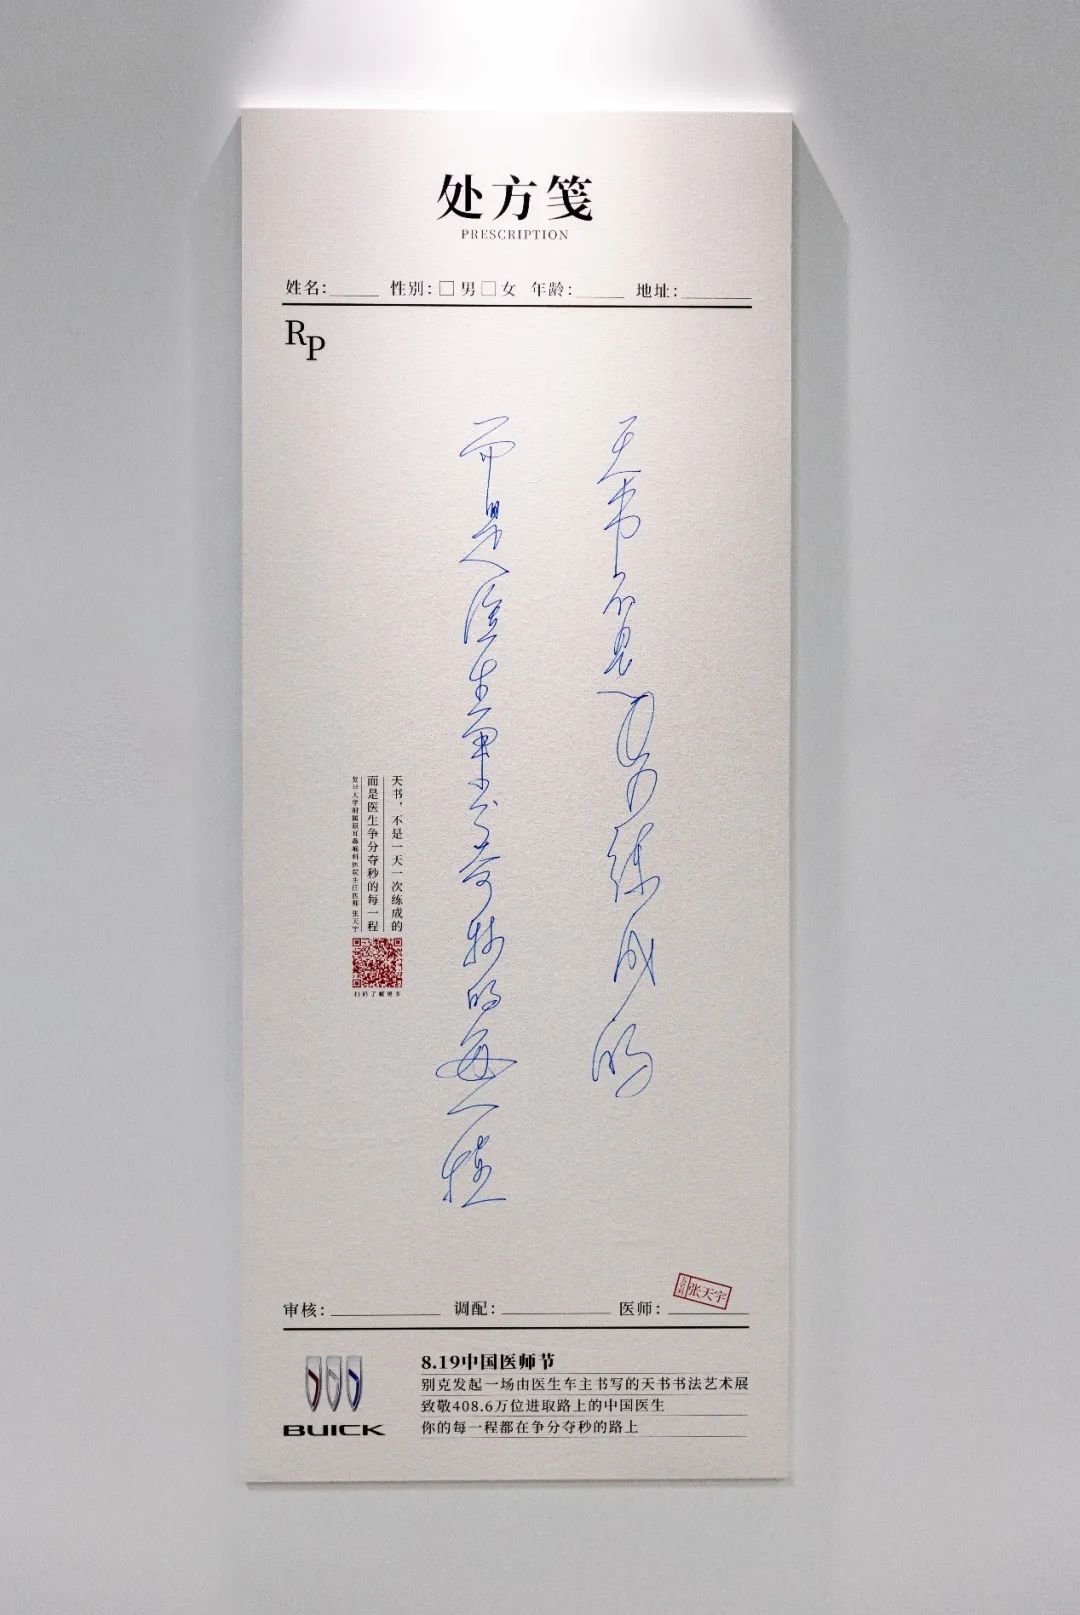 处方笺
PRESCRIPTION
姓名：_____ 性别：□男□女 年龄：_____ 地址：_______
RP
天书不是一天一次练成的
而是医生争分夺秒的每一程
天书，不是一天一次练成的
而是医生争分夺秒的每一程
复旦大学附属眼耳鼻喉科医院主任医师 张天宇
扫码了解更多
审核：___________ 调配：___________ 医师：________
张天宇
BUICK
8.19中国医师节
别克发起一场由医生车主书写的天书书法艺术展
致敬408.6万位进取路上的中国医生
你的每一程都在争分夺秒的路上